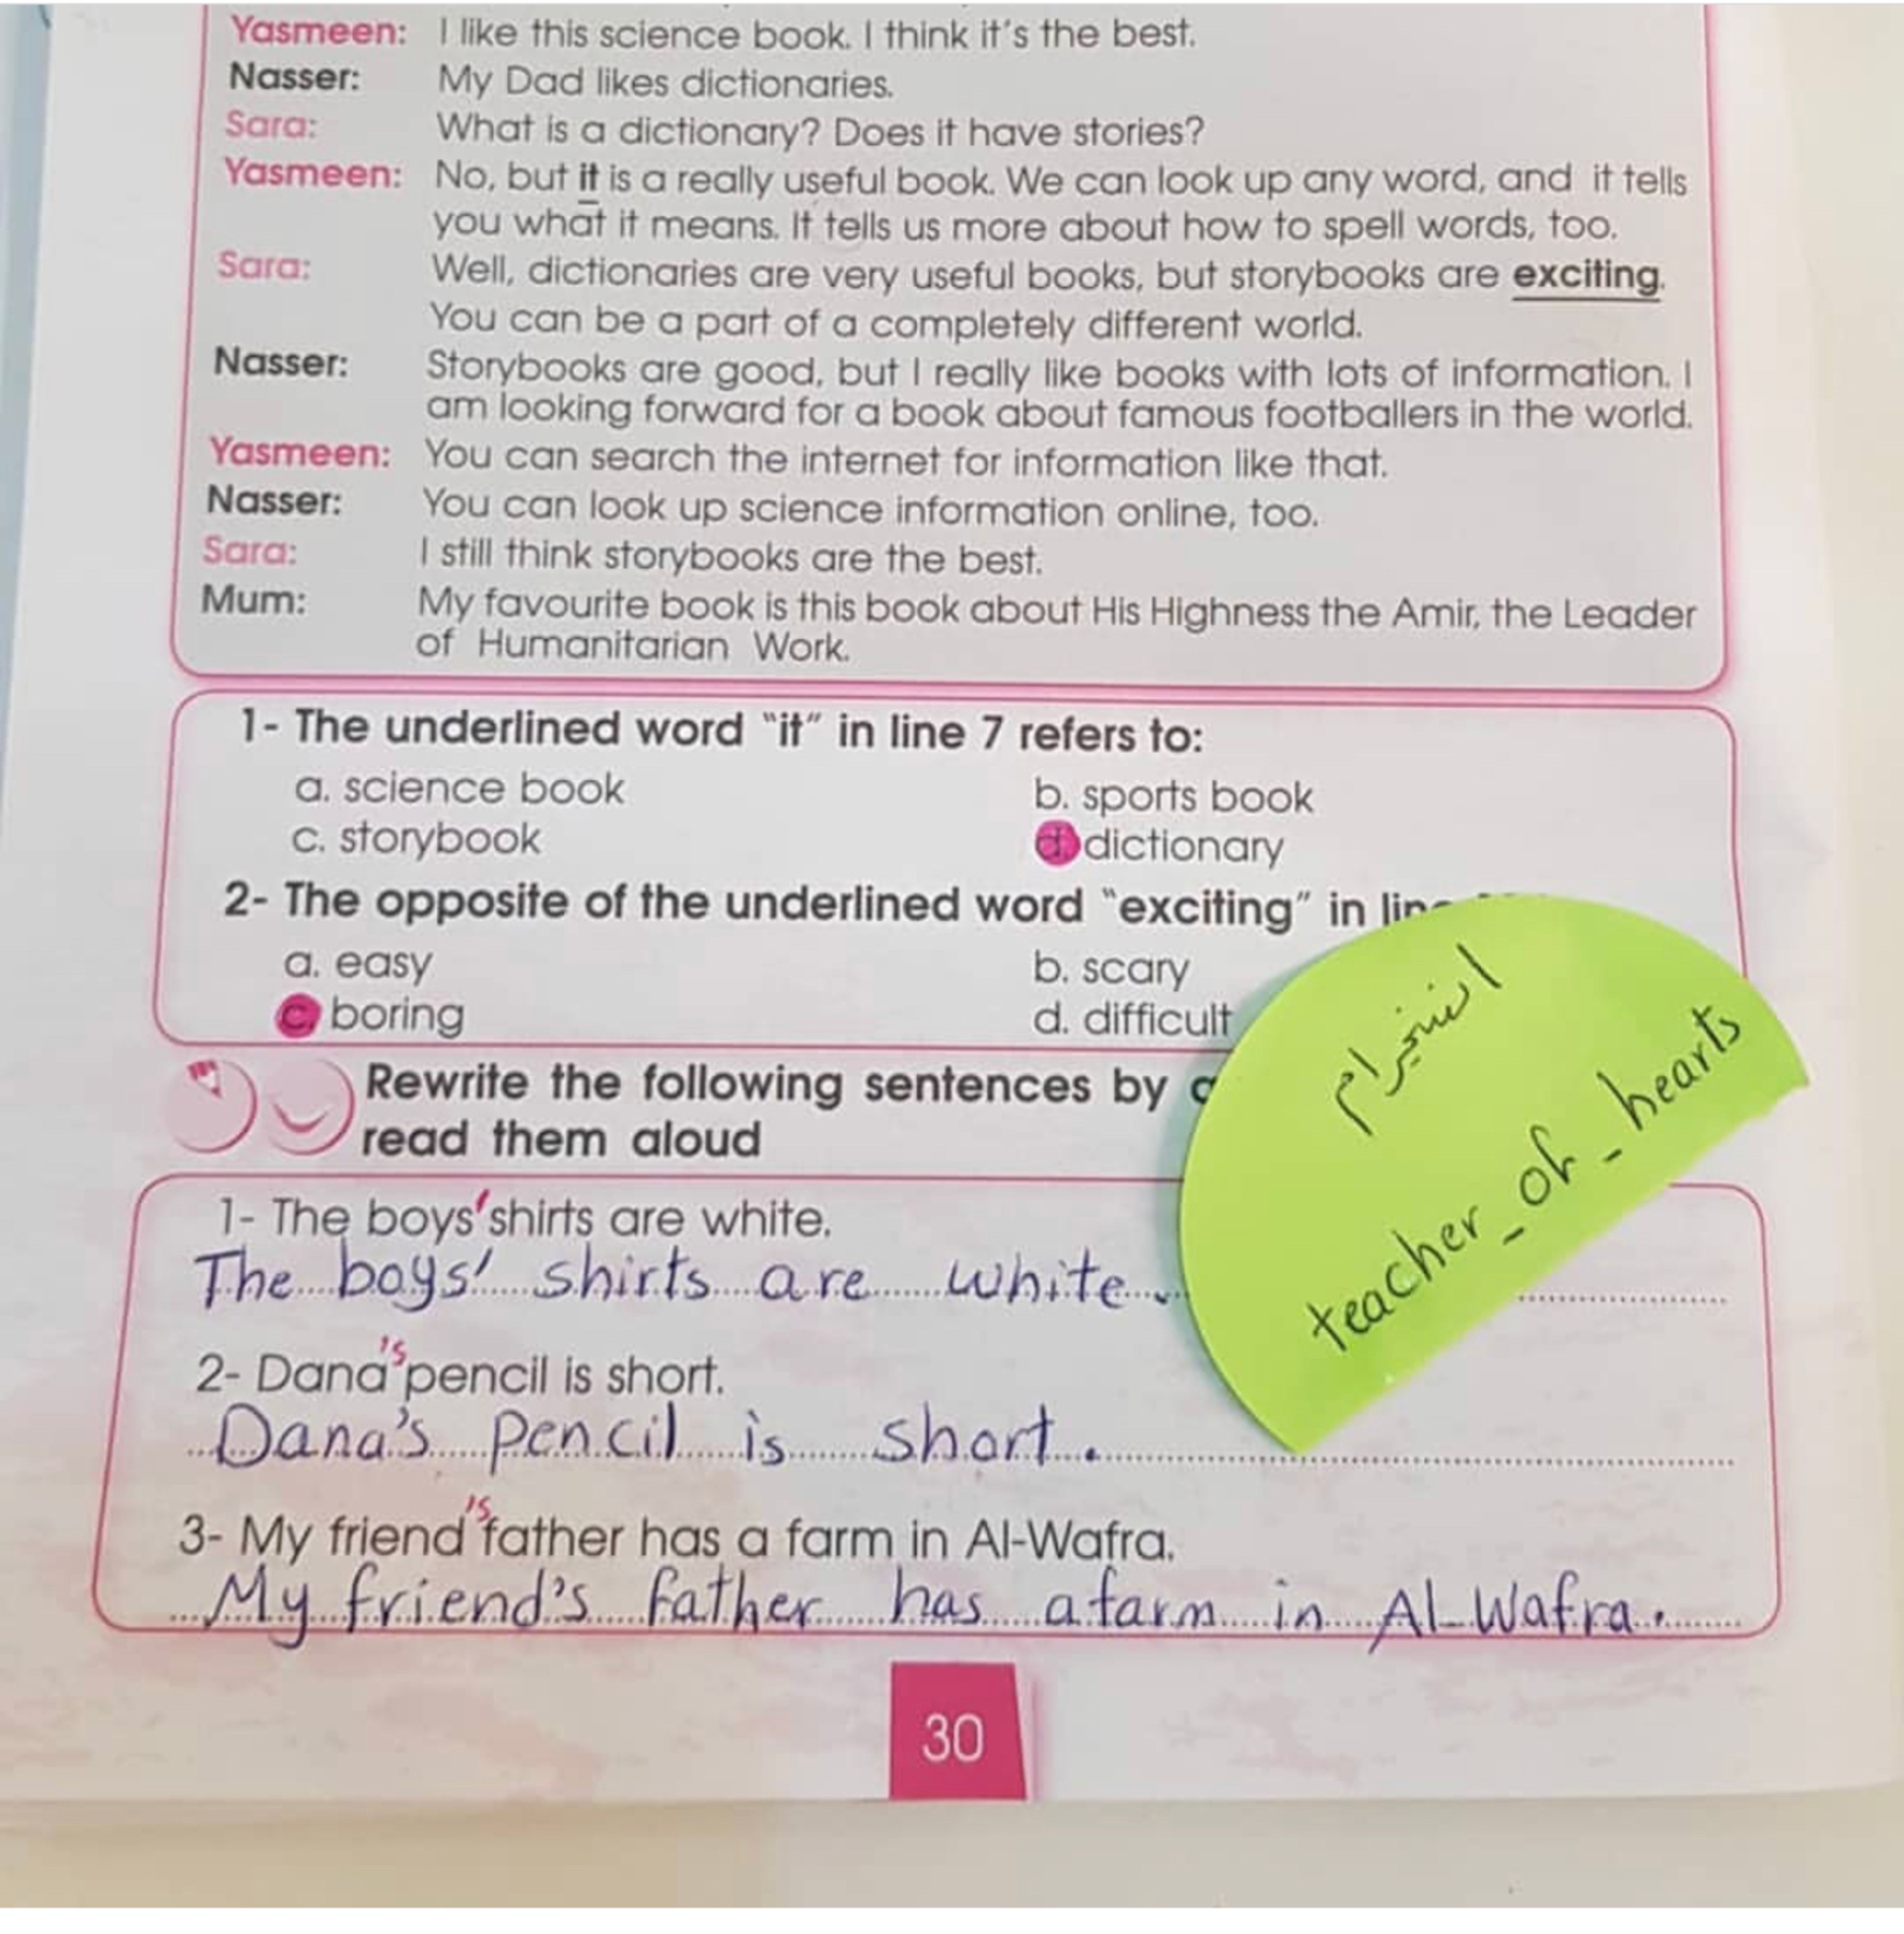 Yasmeen: I like this science book. I think it's the best.
Nasser: My Dad likes dictionaries.
Sara: What is a dictionary? Does it have stories?
Yasmeen: No, but it is a really useful book. We can look up any word, and it tells
you what it means. It tells us more about how to spell words, too.
Sara: Well, dictionaries are very useful books, but storybooks are exciting.
You can be a part of a completely different world.
Nasser: Storybooks are good, but I really like books with lots of information. I
am looking forward for a book about famous footballers in the world.
Yasmeen: You can search the internet for information like that.
Nasser: You can look up science information online, too.
Sara: I still think storybooks are the best.
Mum: My favourite book is this book about His Highness the Amir, the Leader
of Humanitarian Work.
1- The underlined word "it" in line 7 refers to:
a. science book b. sports book
c. storybook d. dictionary
2- The opposite of the underlined word "exciting" in
a. easy b. scary
c. boring d. difficult
Rewrite the following sentences by
read them aloud
1- The boys' shirts are white.
The boys' shirts are white.
2- Dana's pencil is short.
Dana's pencil is short.
3- My friend's father has a farm in Al-Wafra.
My friend's father has a farm in Al-Wafra.
انستجرام
teacher_of_hearts
30